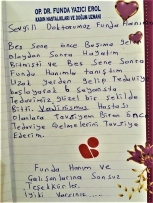 OP. DR. FUNDA YAZICI EROL
KADIN HASTALIKLARI VE DOĞUM UZMANI
Sevgili Doktorumuz Funda Hanım
Beş Sene Önce Başıma Gelen
Olaydan Sonra Hayatım
Bitmişti ve Beş Sene Sonra
Funda Hanımla tanıştım
Uzak yerden Gelip Tedaviye
başlayarak 6 ayımızda
Tedavimiz, güzel bir şekilde
Bitti Vajinismus Hastası
Olanlara Tavsiyem Biran önce
Tedaviye Gelmelerini Tavsiye
Ederim.
Funda Hanım ve
Çalışanlarına Sonsuz
Teşekkürler.
İyiki Varsınız